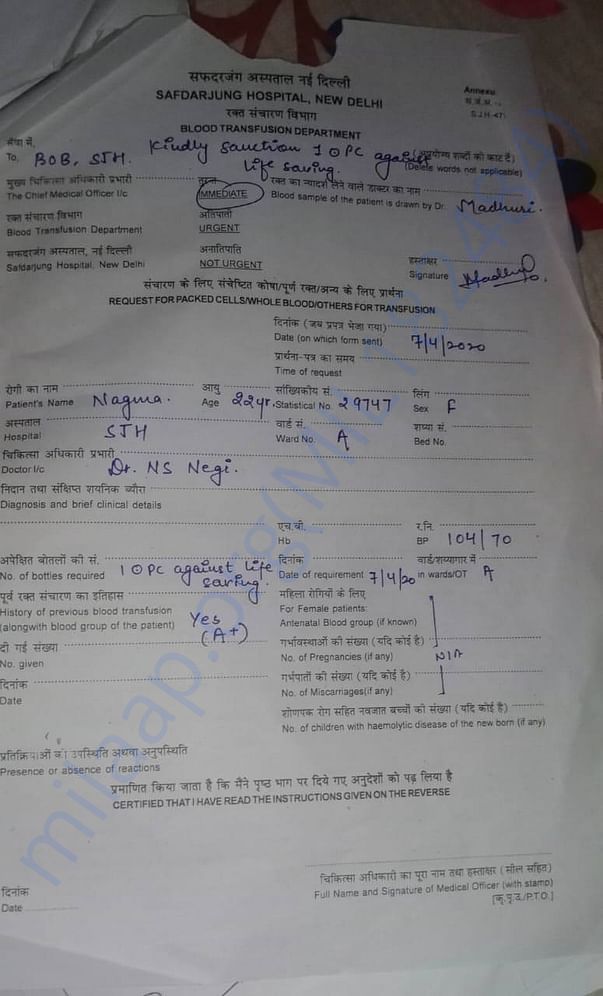 सफदरजंग अस्पताल नई दिल्ली
SAFDARJUNG HOSPITAL, NEW DELHI
रक्त संचारण विभाग
BLOOD TRANSFUSION DEPARTMENT
Annexu
S.J.H-47
सेवा में,
To, BOB, SJH. Kindly sanction 1 OPC against life saving.
(अनुपयोग्य शब्दों को काट दें)
(Delete words not applicable)
मुख्य चिकित्सा अधिकारी प्रभारी तुरन्त रक्त का न्यादर्श लेने वाले डाक्टर का नाम
The Chief Medical Officer I/c IMMEDIATE Blood sample of the patient is drawn by Dr. Madhuri.
रक्त संचारण विभाग अतिपाती
Blood Transfusion Department URGENT
सफदरजंग अस्पताल, नई दिल्ली अनातिपाति हस्ताक्षर
Safdarjung Hospital, New Delhi NOT URGENT Signature
संचारण के लिए संचेष्टित कोषा/पूर्ण रक्त/अन्य के लिए प्रार्थना
REQUEST FOR PACKED CELLS/WHOLE BLOOD/OTHERS FOR TRANSFUSION
दिनांक (जब प्रपत्र भेजा गया)
Date (on which form sent) 7/4/2020
प्रार्थना-पत्र का समय
Time of request
रोगी का नाम आयु सांख्यिकीय सं. लिंग
Patient's Name Nagma. Age 22yr. Statistical No. 29747 Sex F
अस्पताल वार्ड सं. शय्या सं.
Hospital SJH Ward No. A Bed No.
चिकित्सा अधिकारी प्रभारी
Doctor I/c Dr. NS Negi.
निदान तथा संक्षिप्त शयनिक ब्यौरा
Diagnosis and brief clinical details
एच.बी. र.नि.
Hb BP 104/70
अपेक्षित बोतलों की सं. दिनांक वार्ड/शय्यागार में
No. of bottles required 1 OPC against life saving. Date of requirement 7/4/20 in wards/OT A
पूर्व रक्त संचारण का इतिहास महिला रोगियों के लिए
History of previous blood transfusion Yes For Female patients:
(alongwith blood group of the patient) (A+) Antenatal Blood group (if known)
दी गई संख्या गर्भावस्थाओं की संख्या (यदि कोई है)
No. given No. of Pregnancies (if any) N/A
दिनांक गर्भपातों की संख्या (यदि कोई है)
Date No. of Miscarriages(if any)
शोणपक रोग सहित नवजात बच्चों की संख्या (यदि कोई है)
No. of children with haemolytic disease of the new born (if any)
प्रतिक्रियाओं की उपस्थिति अथवा अनुपस्थिति
Presence or absence of reactions
प्रमाणित किया जाता है कि मैंने पृष्ठ भाग पर दिये गए अनुदेशों को पढ़ लिया है
CERTIFIED THAT I HAVE READ THE INSTRUCTIONS GIVEN ON THE REVERSE
चिकित्सा अधिकारी का पूरा नाम तथा हस्ताक्षर (सील सहित)
दिनांक Full Name and Signature of Medical Officer (with stamp)
Date [कृ.पृ.उ./P.T.O.]